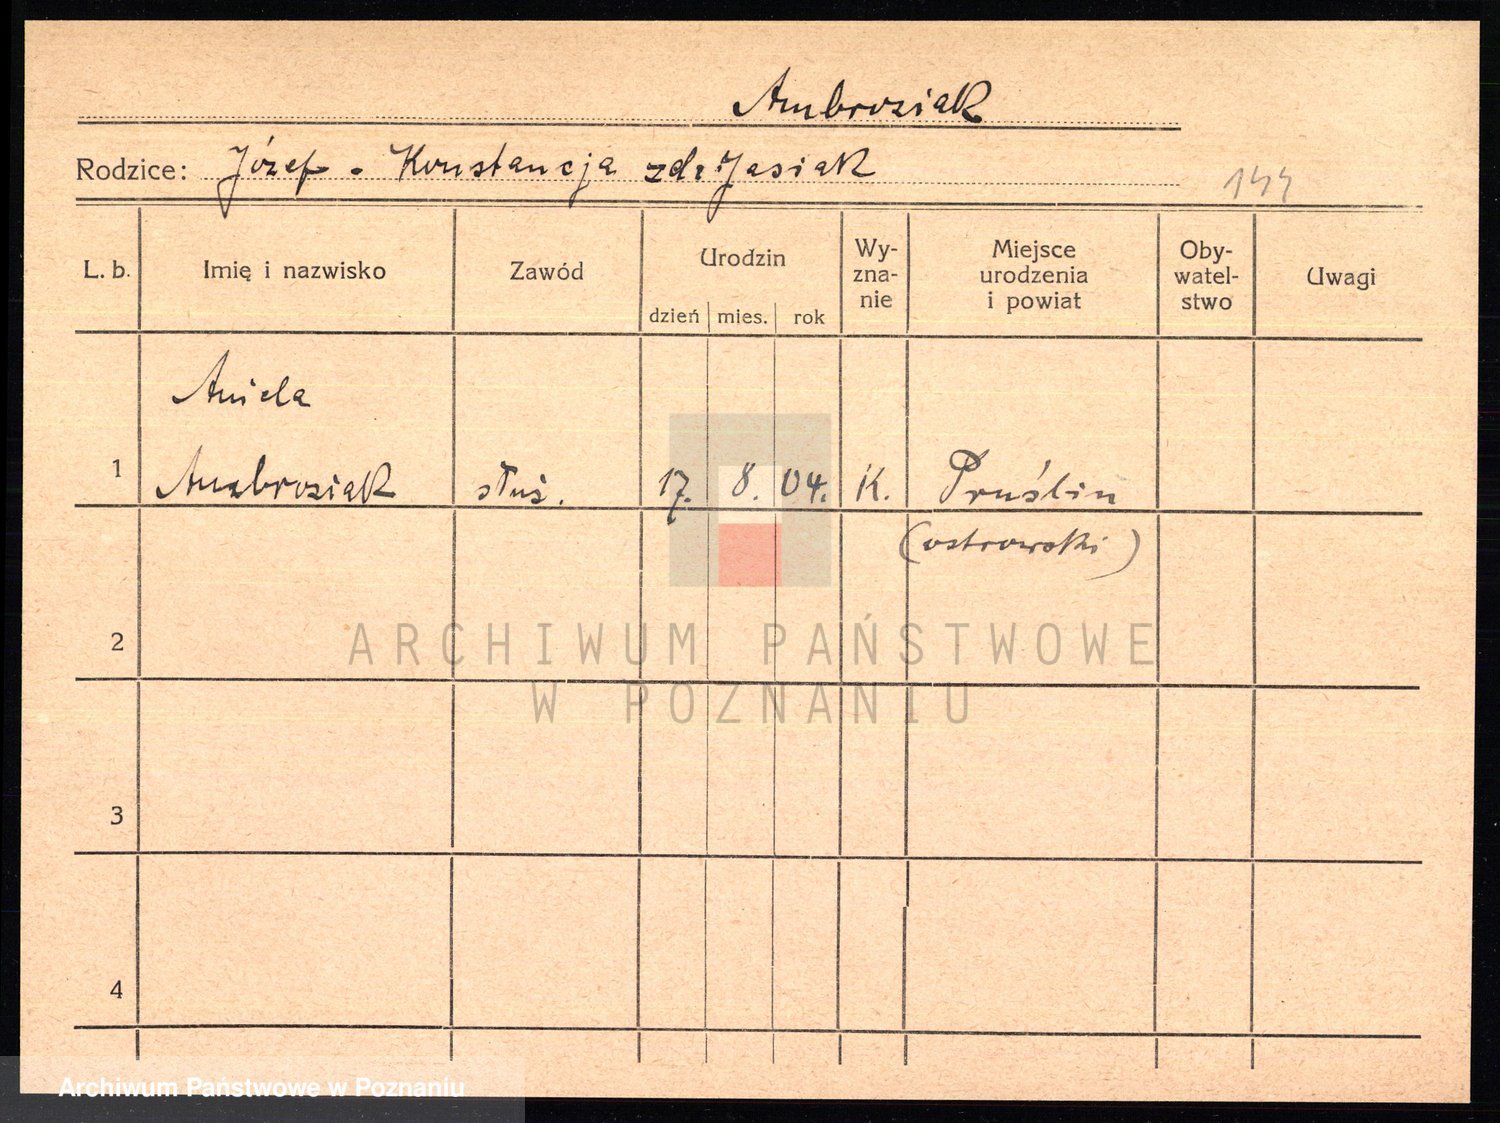 Ambrosiak
Rodzice: Józef - Konstancja zd: Jasiak
144
L. b. Imię i nazwisko Zawód Urodzin dzień mies. rok Wy-zna-nie Miejsce urodzenia i powiat Oby-watel-stwo Uwagi
Aniela
1 Ambrosiak służ. 17. 8. 04. K. Pruślin
(ostrowski)
2
ARCHIWUM PAŃSTWOWE
W POZNANIU
3
4
Archiwum Państwowe w Poznaniu